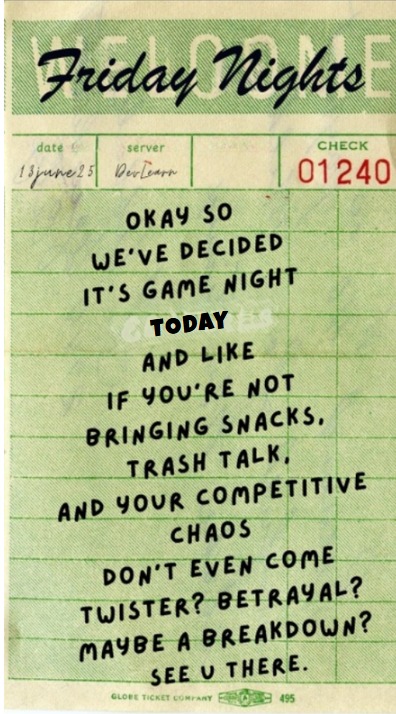 WELCOME
Friday Nights
date server CHECK
13june25 DevLearn 01240
OKAY SO
WE'VE DECIDED
IT'S GAME NIGHT
TODAY
AND LIKE
IF YOU'RE NOT
BRINGING SNACKS,
TRASH TALK,
AND YOUR COMPETITIVE
CHAOS
DON'T EVEN COME
TWISTER? BETRAYAL?
MAYBE A BREAKDOWN?
SEE U THERE.
GLOBE TICKET COMPANY 495